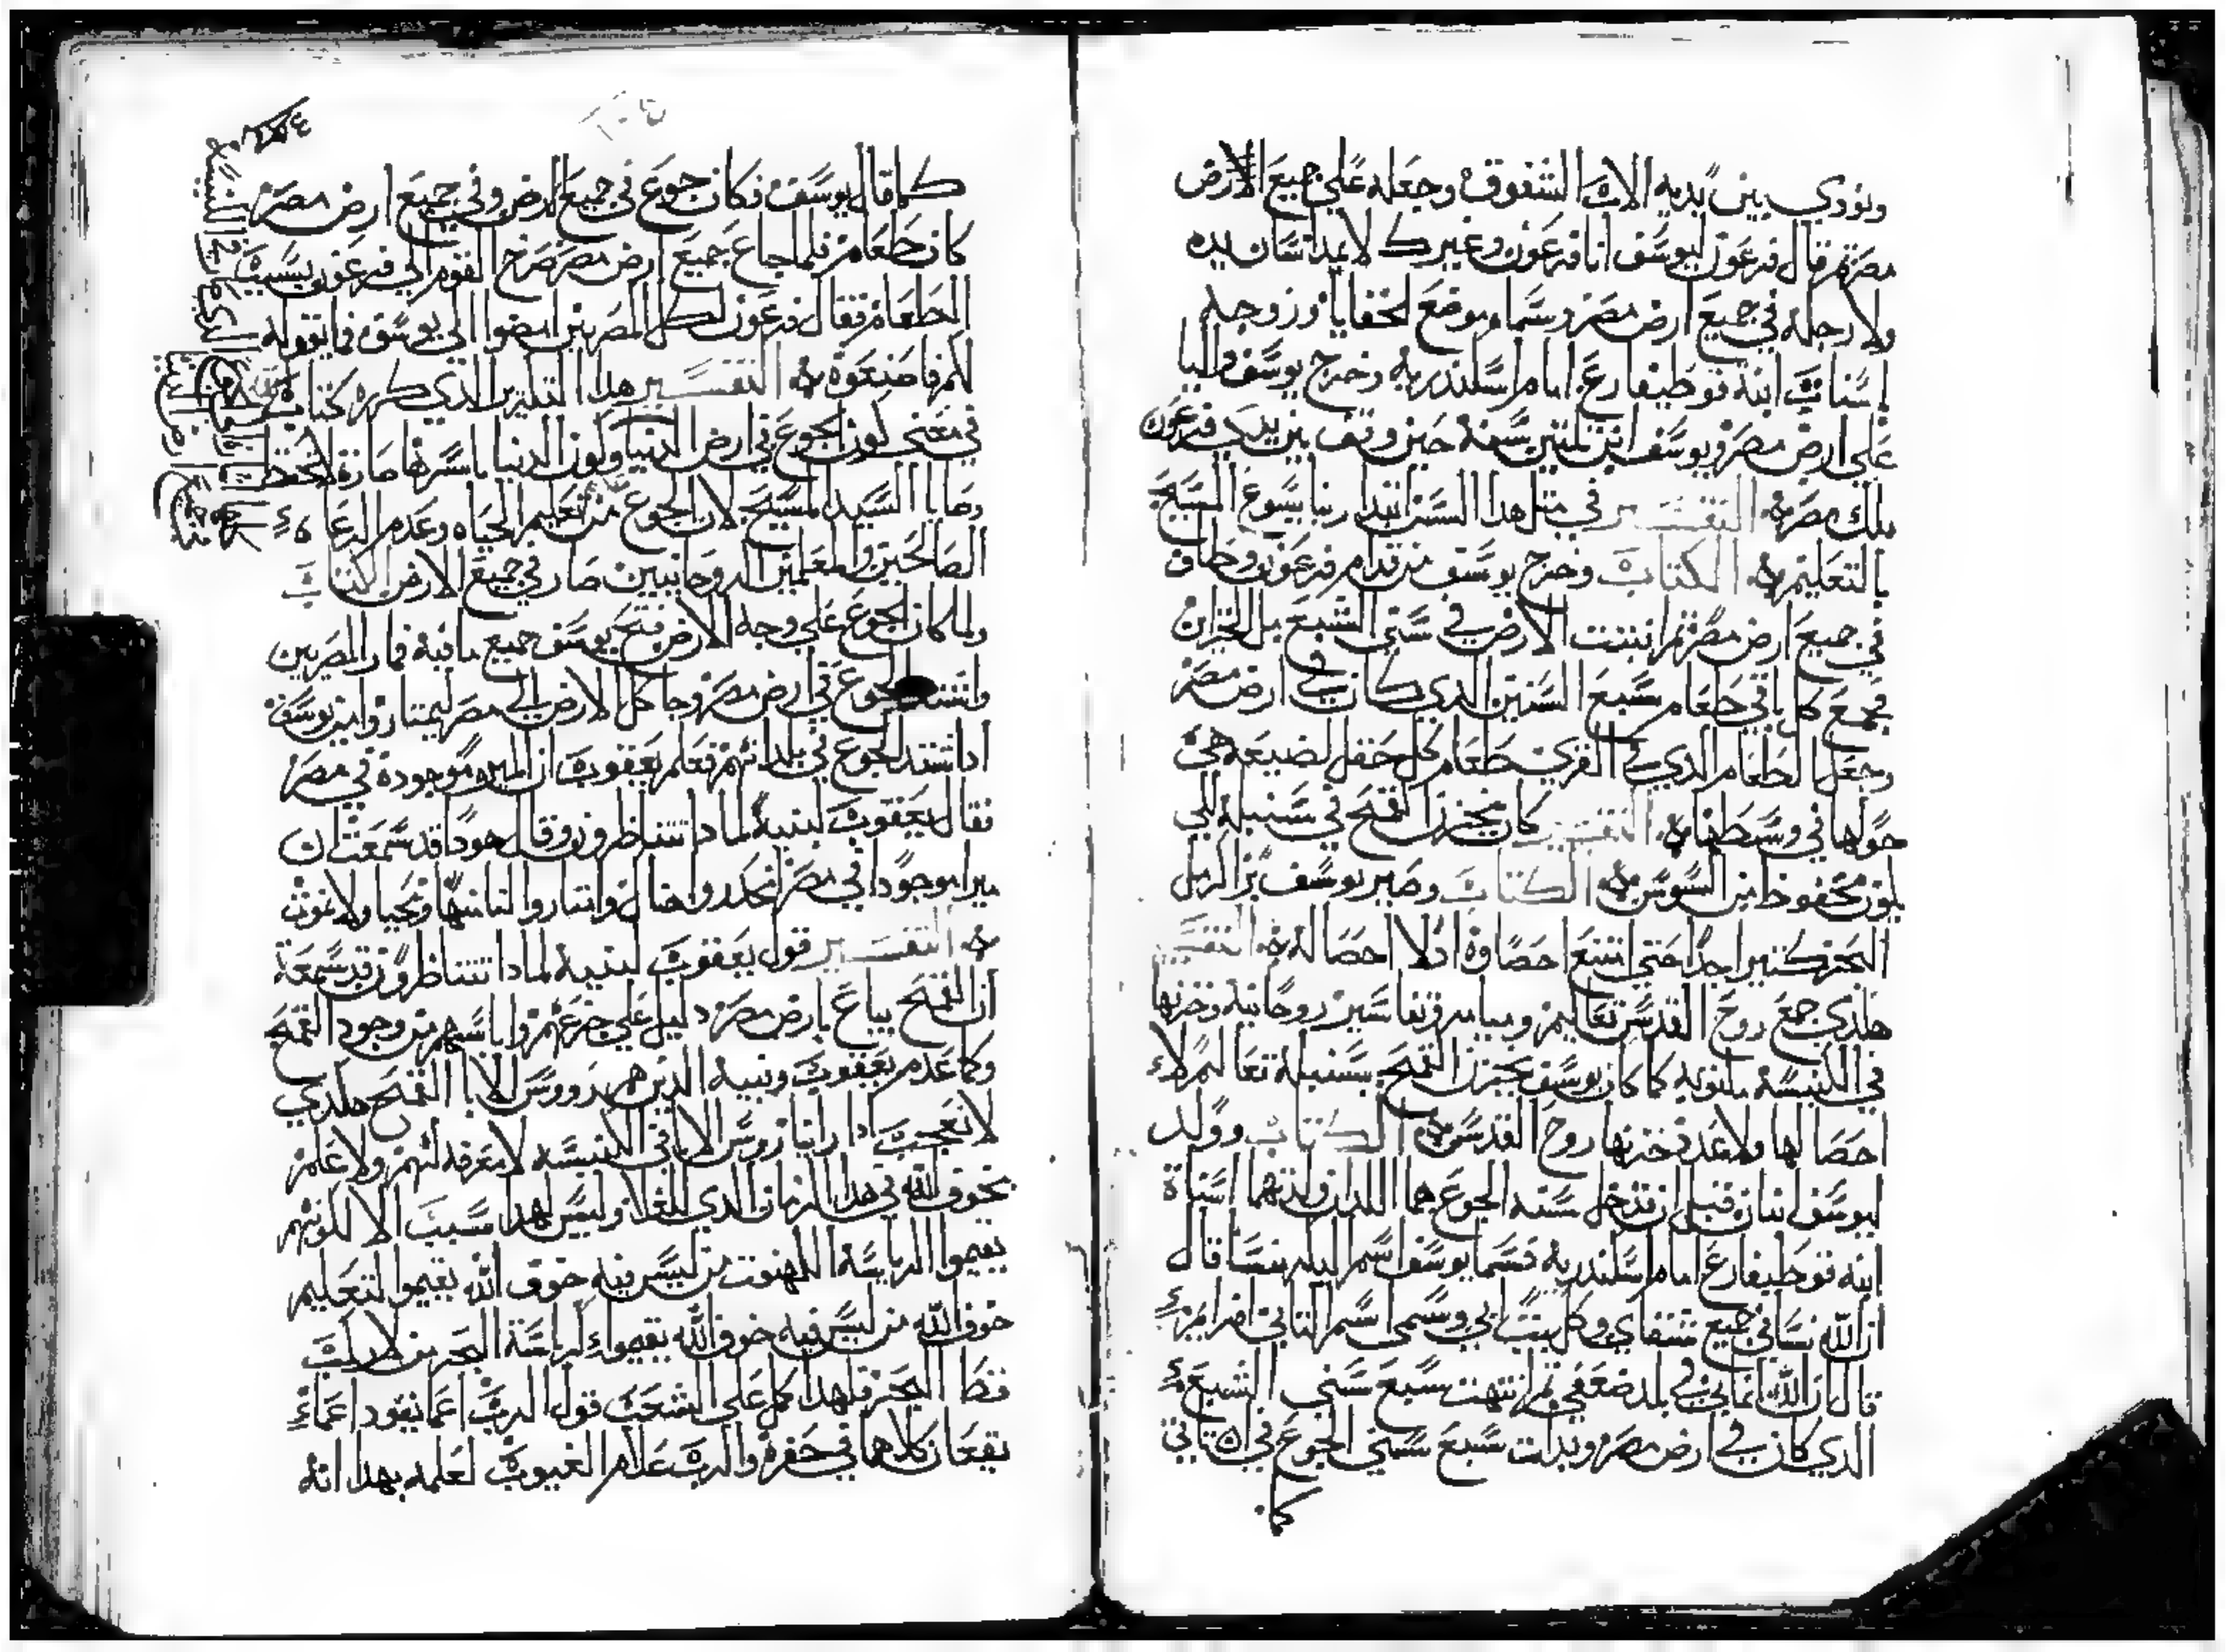 ونودي بين يديه الاب الشفوق وجعله علي جميع الارض
مصر ثم قال فرعون ليوسف انا فرعون وغيرك لا يمد انسان يده
ولا رجله في جميع ارض مصر وسماه موضع الخفايا وزوجه
اسنات ابنة فوطيفارع امام اسكندريه وخرج يوسف واليا
علي ارض مصر ويوسف ابن ثلثين سنة حين وقف بين يدي فرعون
ملك مصر التفسير في مثل هذا السن ابتدا ربنا يسوع المسيح
بالتعليم الكتاب وخرج يوسف من قدام فرعون وطاف
في جميع ارض مصر ثم انبتت الارض في سني الشبع بل الخزاين
فجمع كل باقي طعام سبع السنين الذي كان في ارض مصر
وجعل الطعام الذي في القري طعام كل حقل لضيعه هي
حولها في وسطها التفسير كان يخزن القمح في سنبله لكي
يكون محفوظ من السوس الكتاب وصير يوسف برا كرمل
البحر كثيرا جدا حتي امتنع احصاوه اذ لا احصا له التفسير
هكذي جمع روح القدس تعاليم وميامر وتفاسير روحانيه وخزنها
في الكنيسة مكتوبه كما كان يوسف يخزن القمح بسنبله تعاليم لا
احصا لها ولا عدد خزنها روح القدس الكتاب وولد
ليوسف ابنان قبل ان تدخل سنه الجوع هما اللذان ولدتهما اسناة
ابنه فوطيفارع امام اسكندريه فسما يوسف اسم البكر منسا قال
ان الله نساني جميع شقاي وكل بيت ابي وسمي اسم الثاني افرايم
قال ان الله انماني في بلد ضعفي ثم انتهت سبع سني الشبع
الذي كان في ارض مصر وبدات سبع سني الجوع في ان تاتي
كما
كما قال يوسف فكان جوع في جميع الارض وفي جميع ارض مصر
كان طعام فلما جاع جميع ارض مصر صرخ القوم الي فرعون بسبب
الطعام فقال فرعون لكل المصريين امضوا الي يوسف فما يقوله
لكم فاصنعوه التفسير هذا التكرير الذي كرره كتاب
في معني كون الجوع في ارض الدنيا وكون الدنيا باسرها صارة لا تحفظ
وصايا السيد المسيح لان الجوع من تعليم الحياه وعدم الرعاه
الصالحين والمعلمين الروحانيين صار في جميع الارض الكتاب
ولما كان الجوع علي وجه الارض فتح يوسف جميع ما فيه فمار المصريين
واشتد الجوع في ارض مصر وجا كل الارض الي مصر ليمتاروا من يوسف
اذ اشتد الجوع في بلدانهم فعلم يعقوب ان الميره موجوده في مصر
فقال يعقوب لبنيه لماذا تتناظرون وقال هوذا قد سمعت ان
ميرا موجودا في مصر انحدروا هناك وامتاروا لنا منها ونحيا ولا نموت
التفسير قول يعقوب لبنيه لماذا تتناظرون قد سمعة
ان القمح يباع بارض مصر دليل علي جزعهم واياسهم من وجود القمح
وكما عدم يعقوب وبنيه الذين هم رووس الابا القمح هكذي
لا تعجب اذا راينا رووس الابا في الكنيسه لا معرفه لهم ولا علم
بخوف الله في هذا الزمان الذي للغلا وليس لهذا سبب الا لكونهم
يقيموا لرياسة الكهنوت من ليس فيه خوف الله يقيموا لتعليم
خوف الله من ليس فيه خوف الله يقيموا لرياسة البحر من لا ركب
قط البحر فلهذا كمل علي الشعب قول الرب اعما يقود اعماء
يقعان كلاهما في حفرة والرب علام الغيوب لعلمه بهذا انه